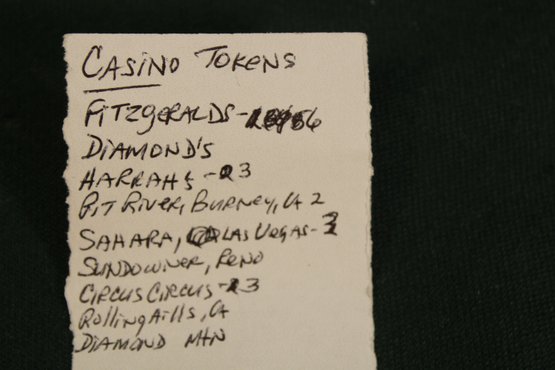 CASINO TOKENS
FITZGERALDS - 6
DIAMOND'S
HARRAHS - 3
PIT RIVER, BURNEY, CA 2
SAHARA, LAS VEGAS - 3
SUNDOWNER, RENO
CIRCUS CIRCUS - 3
Rolling Hills, CA
DIAMOND MTN